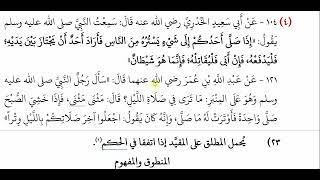 (٤) ١٠٤ - عَنْ أَبِي سَعِيدٍ الخُدْرِيِّ رضي الله عنه قَالَ: سَمِعْتُ النَّبِيَّ صلى الله عليه وسلم
يَقُولُ: «إِذَا صَلَّى أَحَدُكُمْ إِلَى شَيْءٍ يَسْتُرُهُ مِنَ النَّاسِ فَأَرَادَ أَحَدٌ أَنْ يَجْتَازَ بَيْنَ يَدَيْهِ؛
فَلْيَدْفَعْهُ، فَإِنْ أَبَى فَلْيُقَاتِلْهُ؛ فَإِنَّمَا هُوَ شَيْطَانٌ»
١٢١ - عَنْ عَبْدِ اللَّهِ بْنِ عُمَرَ رضي الله عنهما قَالَ: «سَأَلَ رَجُلٌ النَّبِيَّ صلى الله عليه
وسلم وَهُوَ عَلَى المِنْبَرِ: مَا تَرَى فِي صَلَاةِ اللَّيْلِ؟ قَالَ: مَثْنَى، مَثْنَى، فَإِذَا خَشِيَ الصُّبْحَ
صَلَّى وَاحِدَةً فَأَوْتَرَتْ لَهُ مَا صَلَّى، وَإِنَّهُ كَانَ يَقُولُ: اجْعَلُوا آخِرَ صَلَاتِكُمْ بِاللَّيْلِ وِتْراً»
٢٣) يُحمل المطلق على المقيَّد إذا اتفقا في الحكم(١).
المنطوق والمفهوم